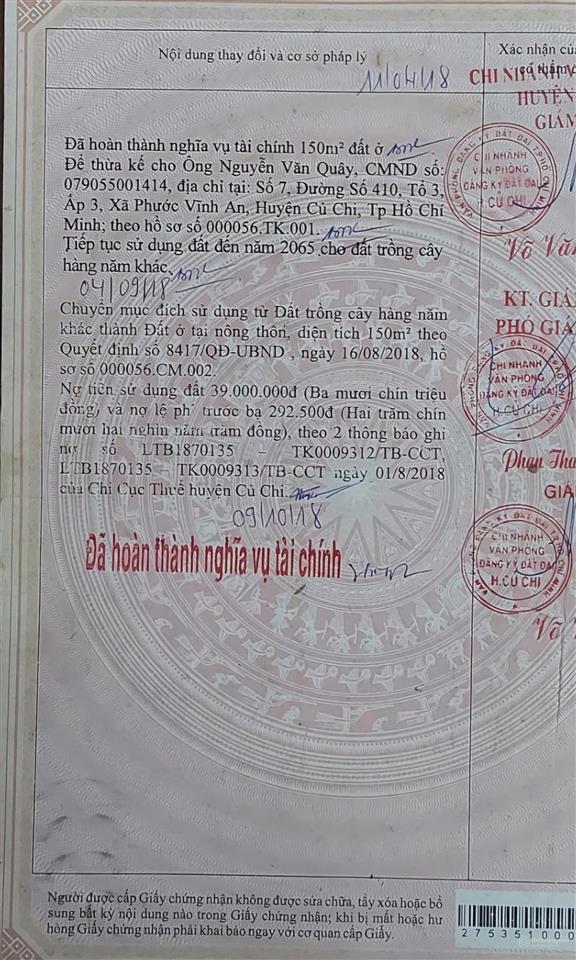 Nội dung thay đổi và cơ sở pháp lý
Xác nhận của
có thẩm
11/04/18
CHI NHÁNH V
HUYỆN
GIÁM
Đã hoàn thành nghĩa vụ tài chính 150m² đất ở
Để thừa kế cho Ông Nguyễn Văn Quây, CMND số:
079055001414, địa chỉ tại: Số 7, Đường Số 410, Tổ 3,
Ấp 3, Xã Phước Vĩnh An, Huyện Củ Chi, Tp Hồ Chí
Minh; theo hồ sơ số 000056.TK.001.
Tiếp tục sử dụng đất đến năm 2065 cho đất trồng cây
hàng năm khác.
CHI NHÁNH
VĂN PHÒNG
ĐĂNG KÝ ĐẤT ĐAI
H.CỦ CHI
Võ Vă
04/09/18
KT. GIÁ
PHÓ GIÁ
Chuyển mục đích sử dụng từ Đất trồng cây hàng năm
khác thành Đất ở tại nông thôn, diện tích 150m² theo
Quyết định số 8417/QĐ-UBND , ngày 16/08/2018, hồ
sơ số 000056.CM.002.
Nợ tiền sử dụng đất 39.000.000đ (Ba mươi chín triệu
đồng) và nợ lệ phí trước bạ 292.500đ (Hai trăm chín
mươi hai nghìn năm trăm đồng), theo 2 thông báo ghi
nợ số LTB1870135 – TK0009312/TB-CCT,
LTB1870135 – TK0009313/TB-CCT ngày 01/8/2018
của Chi Cục Thuế huyện Củ Chi.
CHI NHÁNH
VĂN PHÒNG
ĐĂNG KÝ ĐẤT ĐAI
H.CỦ CHI
Phan Tha
GIÁ
09/10/18
Đã hoàn thành nghĩa vụ tài chính
CHI NHÁNH
VĂN PHÒNG
ĐĂNG KÝ ĐẤT ĐAI
H.CỦ CHI
Võ
Người được cấp Giấy chứng nhận không được sửa chữa, tẩy xóa hoặc bổ
sung bất kỳ nội dung nào trong Giấy chứng nhận; khi bị mất hoặc hư
hỏng Giấy chứng nhận phải khai báo ngay với cơ quan cấp Giấy.
275351000